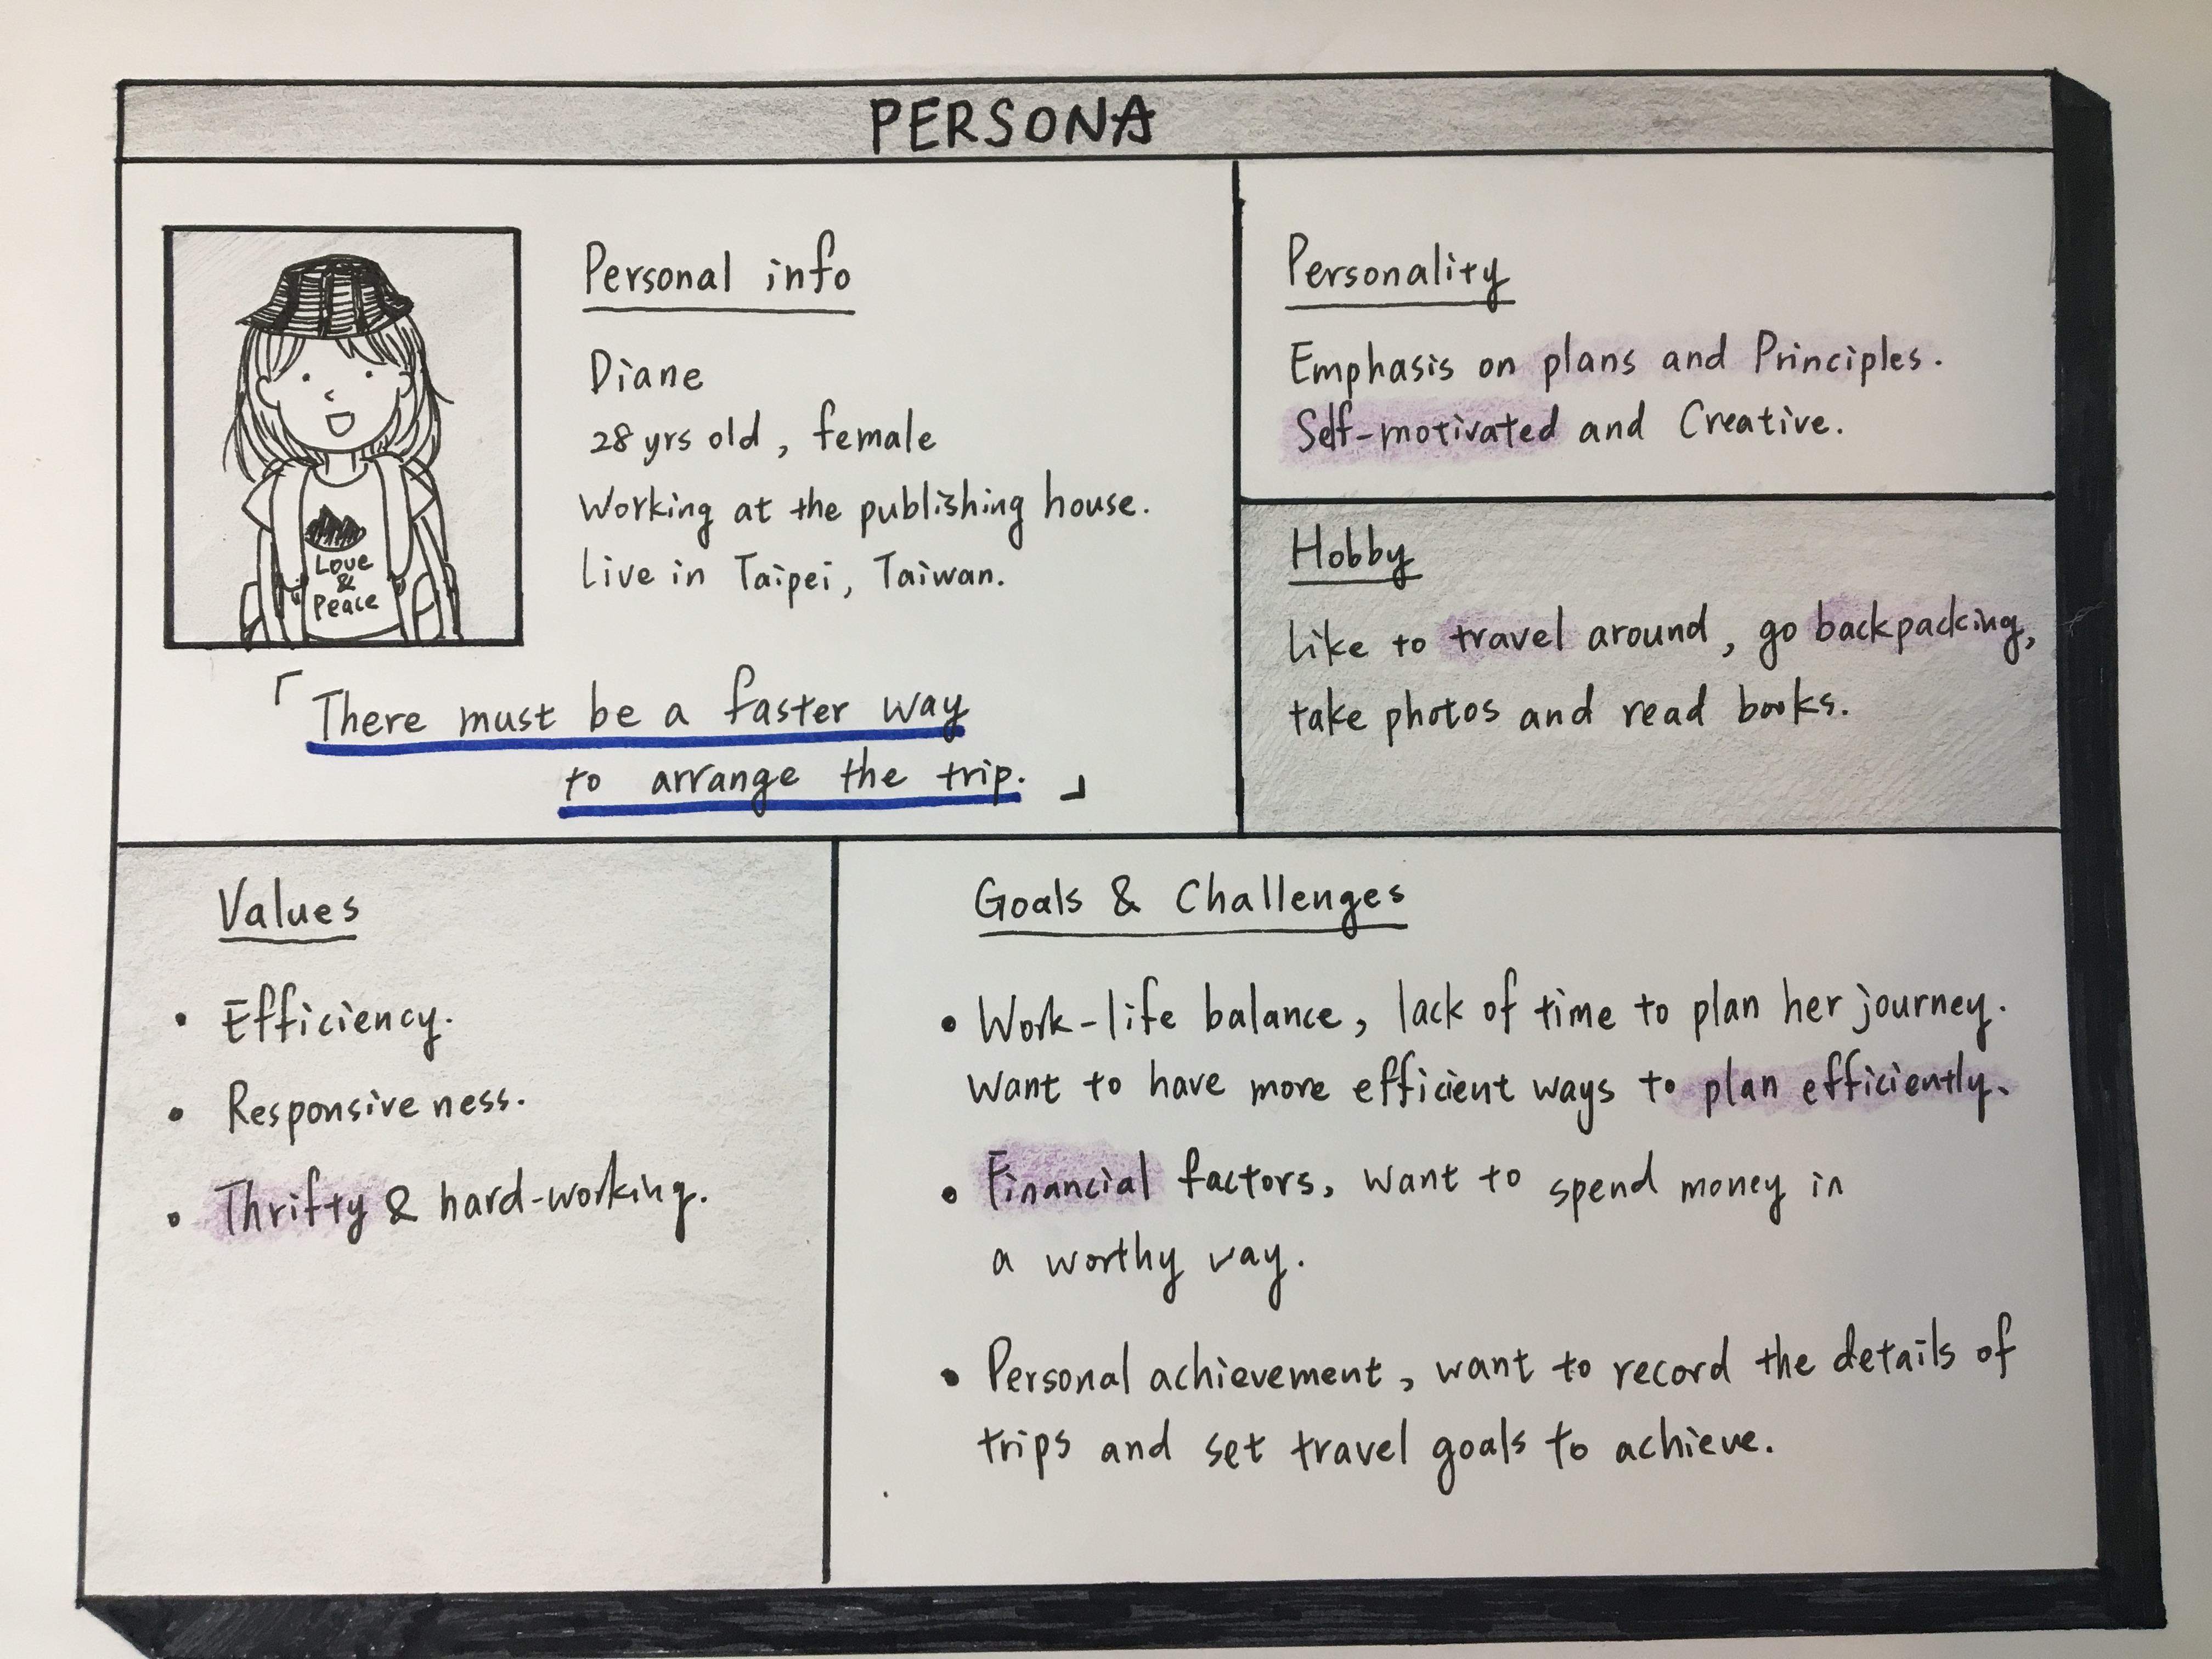 PERSONA
Love
&
Peace
Personal info
Diane
28 yrs old, female
Working at the publishing house.
Live in Taipei, Taiwan.
「There must be a faster way
to arrange the trip.」
Personality
Emphasis on plans and Principles.
Self-motivated and Creative.
Hobby
like to travel around, go backpacking,
take photos and read books.
Values
• Efficiency.
• Responsiveness.
• Thrifty & hard-working.
Goals & Challenges
• Work-life balance, lack of time to plan her journey.
Want to have more efficient ways to plan efficiently.
• Financial factors, want to spend money in
a worthy way.
• Personal achievement, want to record the details of
trips and set travel goals to achieve.